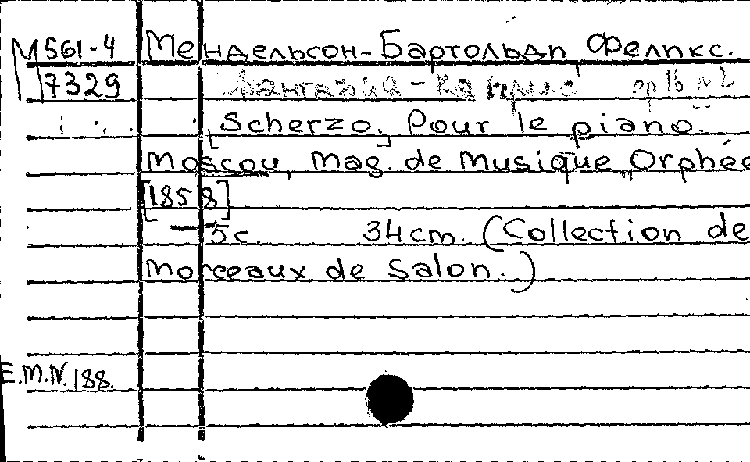 М 561-4 Мендельсон-Бартольди, Феликс.
17329 Фантазия-каприс op 16 №2
[Scherzo.] Pour le piano.
Moscou, Mag. de musique "Orphée
[1858]
5 c. 34 cm. (Collection de
morceaux de salon.)
E.M.N. 188.